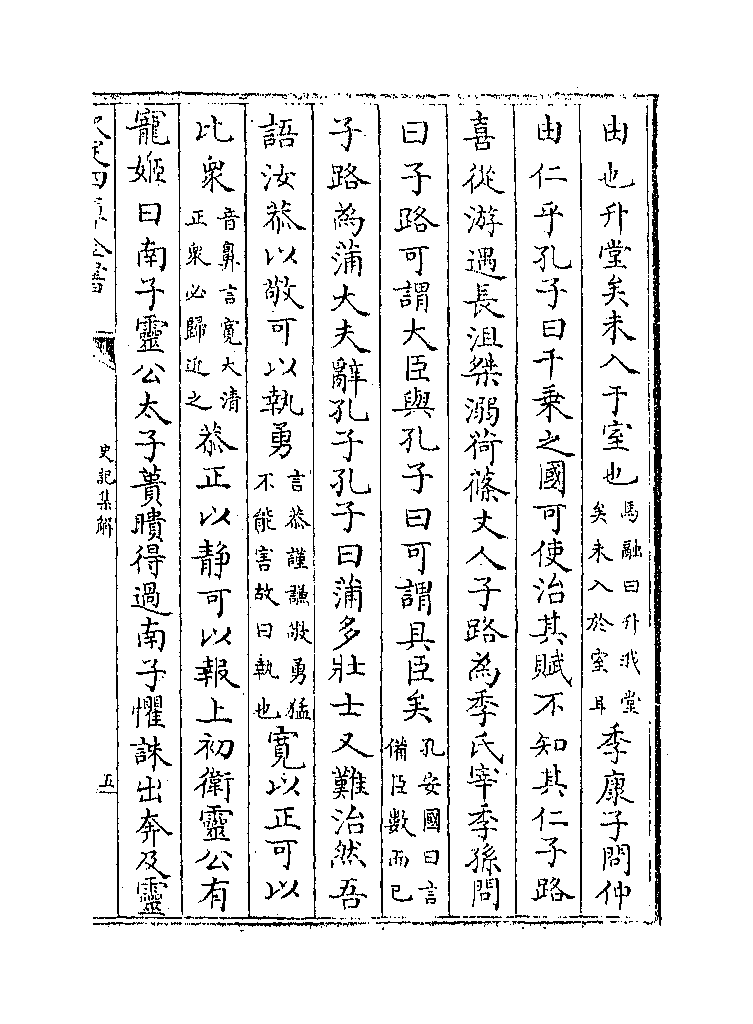 由也升堂矣未入于室也馬融曰升我堂矣未入於室耳季康子問仲
由仁乎孔子曰千乗之國可使治其賦不知其仁子路
喜從游遇長沮桀溺荷蓧丈人子路為季氏宰季孫問
曰子路可謂大臣與孔子曰可謂具臣矣孔安國曰言備臣數而已
子路為蒲大夫辭孔子孔子曰蒲多壯士又難治然吾
語汝恭以敬可以執勇言恭謹謙敬勇猛不能害故曰執也寛以正可以
比衆音鼻言寛大清正衆必歸近之恭正以静可以報上初衛靈公有
寵姬曰南子靈公太子蕢聵得過南子懼誅出奔及靈
欽定四庫全書
史記集解
五